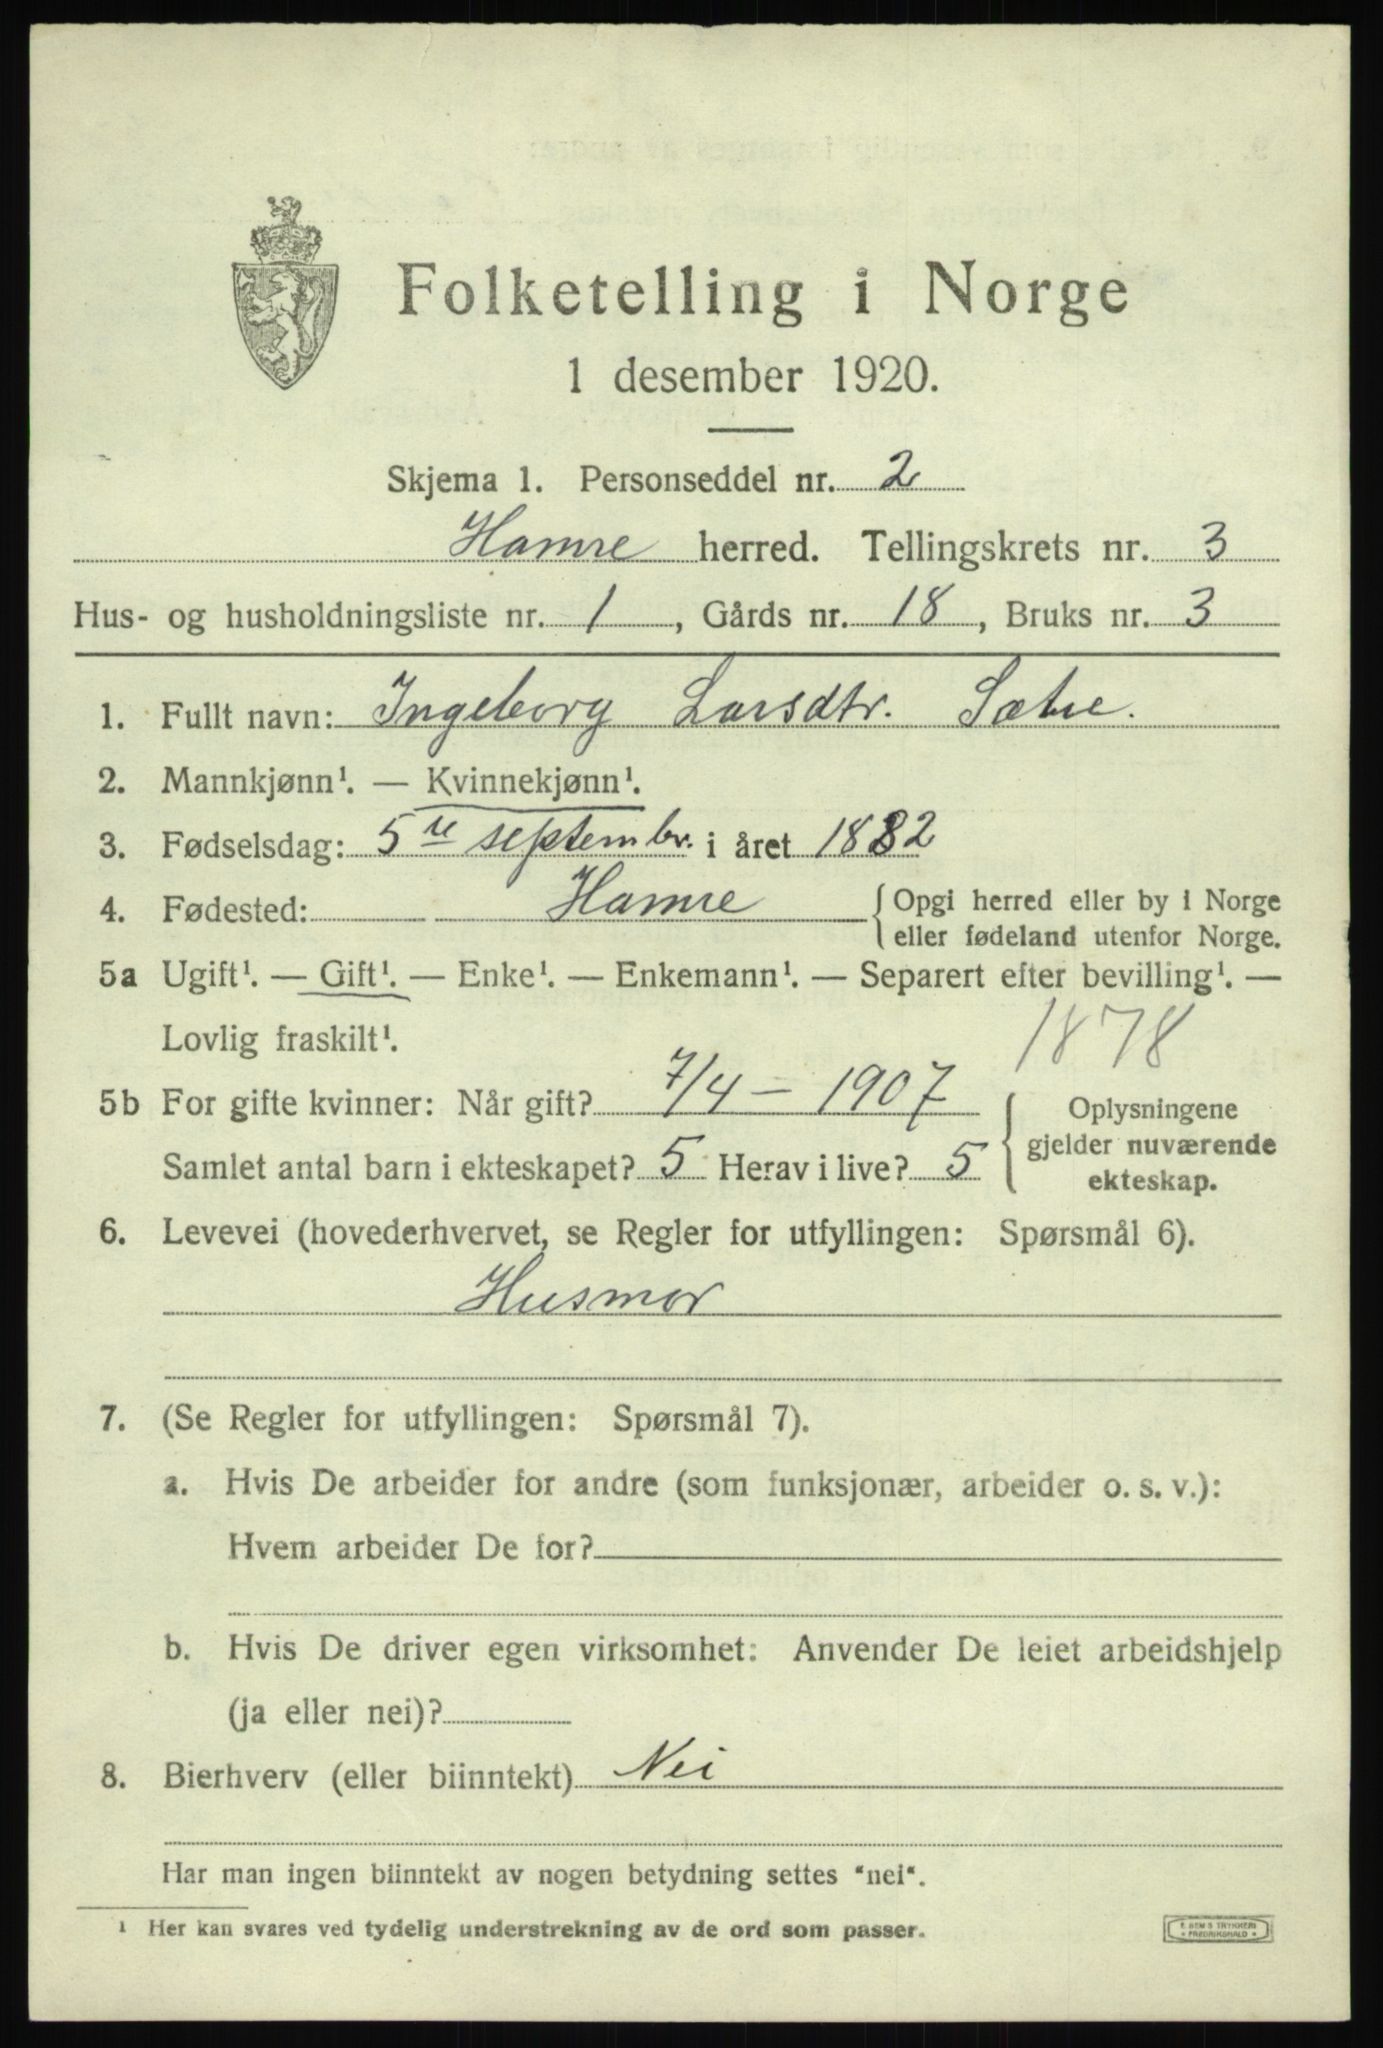 Folketelling i Norge
1 desember 1920.
Skjema 1. Personseddel nr. 2
Hamre herred. Tellingskrets nr. 3
Hus- og husholdningsliste nr. 1, Gårds nr. 18, Bruks nr. 3
1. Fullt navn: Ingeborg Larsdtr. Sætre.
2. Mannkjønn¹. — Kvinnekjønn¹.
3. Fødselsdag: 5te septembr. i året 1882
4. Fødested: Hamre { Opgi herred eller by i Norge
eller fødeland utenfor Norge.
5a Ugift¹. — Gift¹. — Enke¹. — Enkemann¹. — Separert efter bevilling¹. —
Lovlig fraskilt¹.
1878
5b For gifte kvinner: Når gift? 7/4 – 1907
Samlet antal barn i ekteskapet? 5 Herav i live? 5
{ Oplysningene
gjelder nuværende
ekteskap.
6. Levevei (hovederhvervet, se Regler for utfyllingen: Spørsmål 6).
Husmor
7. (Se Regler for utfyllingen: Spørsmål 7).
a. Hvis De arbeider for andre (som funksjonær, arbeider o. s. v.):
Hvem arbeider De for?
b. Hvis De driver egen virksomhet: Anvender De leiet arbeidshjelp
(ja eller nei)?
8. Bierhverv (eller biinntekt) Nei
Har man ingen biinntekt av nogen betydning settes "nei".
¹ Her kan svares ved tydelig understrekning av de ord som passer.
E. SEM'S TRYKKERI
• FREDRIKSHALD •